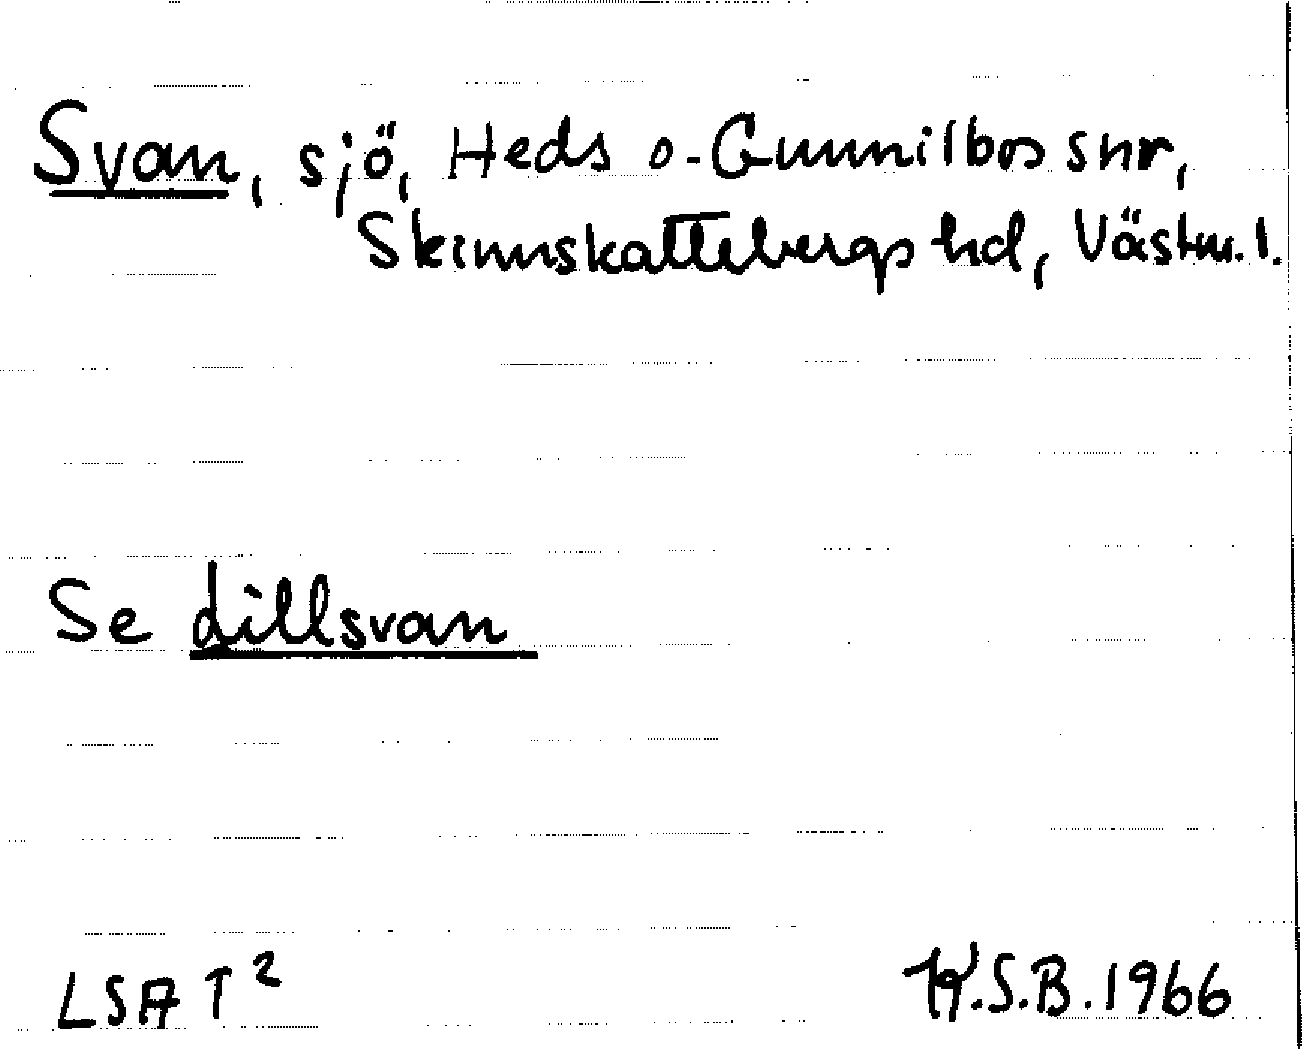 Svan, sjö, Heds o. Gunnilbos snr,
Skinnskattebergs hd, Västm. l.
Se Lillsvan
LSA T²
K.S.B. 1966